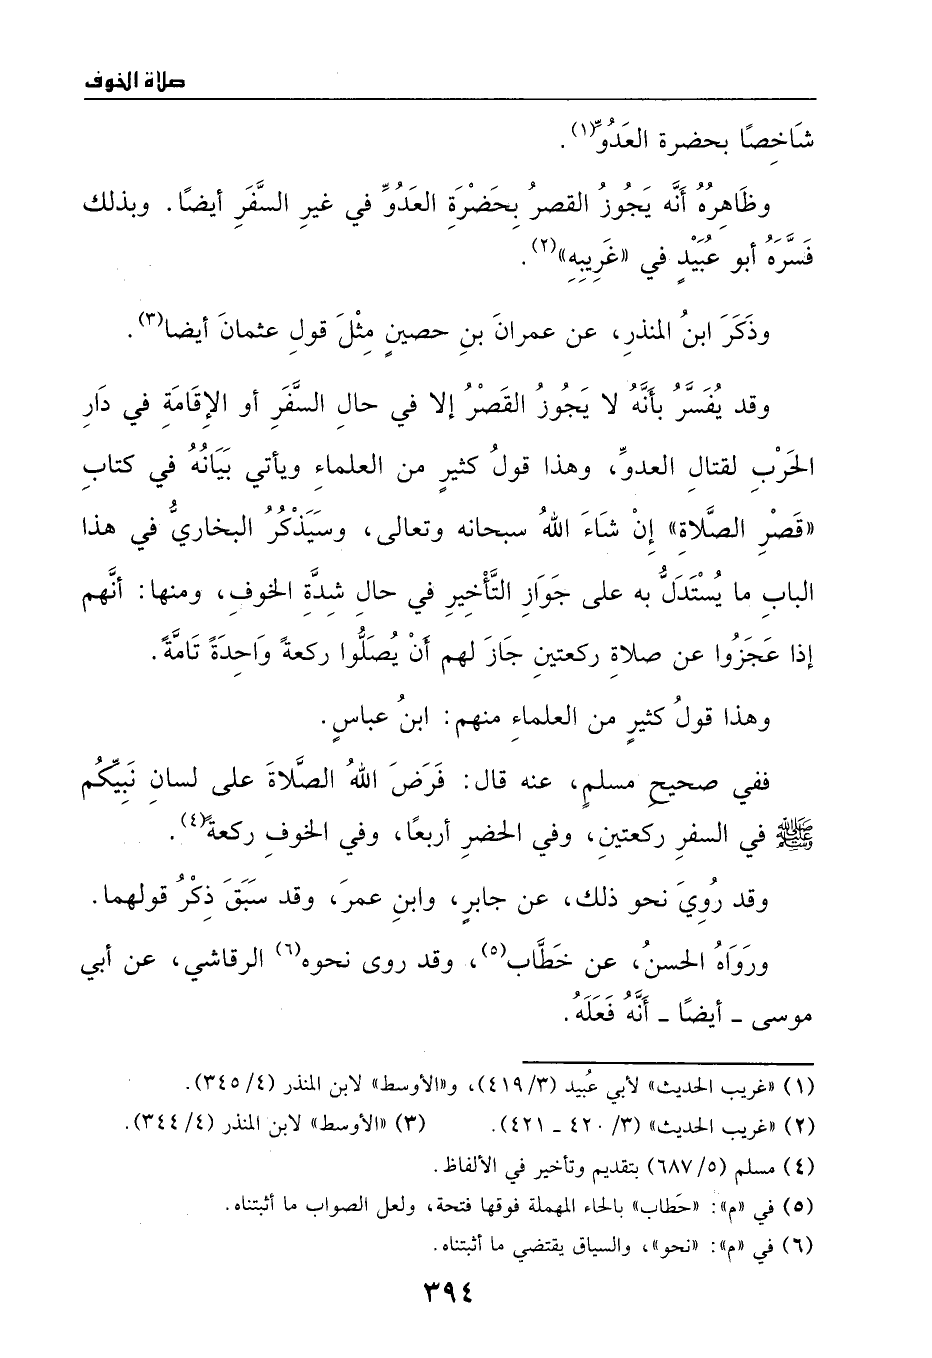 صلاة الخوف
شَاخِصًا بحضرة العَدُوِّ(١).
وظَاهِرُهُ أَنَّه يَجُوزُ القصرُ بِحَضْرَةِ العَدُوِّ في غيرِ السَّفَرِ أيضًا. وبذلك
فَسَّرَهُ أبو عُبَيْدٍ في «غَرِيبِهِ»(٢).
وذَكَرَ ابنُ المنذرِ، عن عمرانَ بنِ حصينٍ مِثْلَ قولِ عثمانَ أيضا(٣).
وقد يُفَسَّرُ بأنَّهُ لا يَجُوزُ القَصْرُ إلا في حالِ السَّفَرِ أو الإقَامَةِ في دَارِ
الحَرْبِ لقتالِ العدوِّ، وهذا قولُ كثيرٍ من العلماءِ ويأتي بَيَانُهُ في كتابِ
«قَصْرِ الصَّلاةِ» إنْ شَاءَ اللهُ سبحانه وتعالى، وسَيَذْكُرُ البخاريُّ في هذا
البابِ ما يُسْتَدَلُّ به على جَوَازِ التَّأْخِيرِ في حالِ شِدَّةِ الخوفِ، ومنها: أنَّهم
إذا عَجَزُوا عن صلاةِ ركعتينِ جَازَ لهم أَنْ يُصَلُّوا ركعةً وَاحِدَةً تَامَّةً.
وهذا قولُ كثيرٍ من العلماءِ منهم: ابنُ عباسٍ.
ففي صحيحِ مسلمٍ، عنه قال: فَرَضَ اللهُ الصَّلاةَ على لسانِ نَبِيِّكُم
ﷺ في السفرِ ركعتينِ، وفي الحضرِ أربعًا، وفي الخوفِ ركعةً(٤).
وقد رُوِيَ نحو ذلك، عن جابرٍ، وابنِ عمرَ، وقد سَبَقَ ذِكْرُ قولهما.
ورَوَاهُ الحسنُ، عن خَطَّاب(٥)، وقد روى نحوه(٦) الرقاشي، عن أبي
موسى - أيضًا - أَنَّهُ فَعَلَهُ.
(١) «غريب الحديث» لأبي عُبيد (٣/ ٤١٩)، و«الأوسط» لابن المنذر (٤/ ٣٤٥).
(٢) «غريب الحديث» (٣/ ٤٢٠ - ٤٢١). (٣) «الأوسط» لابن المنذر (٤/ ٣٤٤).
(٤) مسلم (٥/ ٦٨٧) بتقديم وتأخير في الألفاظ.
(٥) في «م»: «حَطاب» بالحاء المهملة فوقها فتحة، ولعل الصواب ما أثبتناه.
(٦) في «م»: «نحو»، والسياق يقتضي ما أثبتناه.
٣٩٤